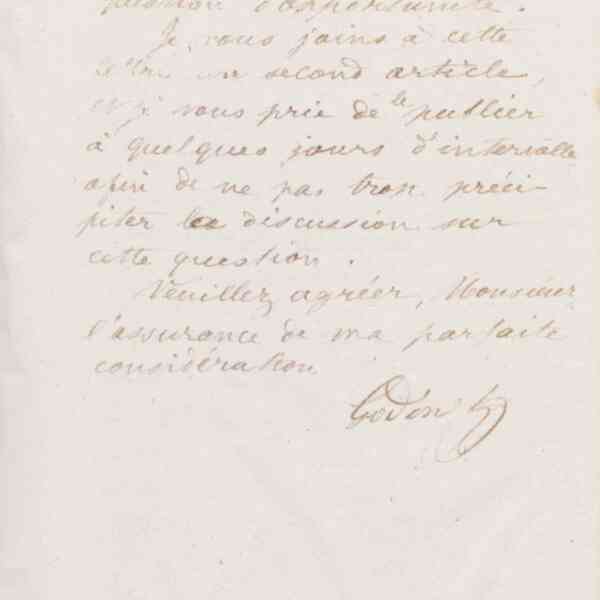 question d'opportunité.
Je vous joins à cette
lettre un second article,
et je vous prie de le publier
à quelques jours d'intervalle
afin de ne pas trop préci-
piter la discussion sur
cette question.
Veuillez agréer, Monsieur
l'assurance de ma parfaite
considération
Godin